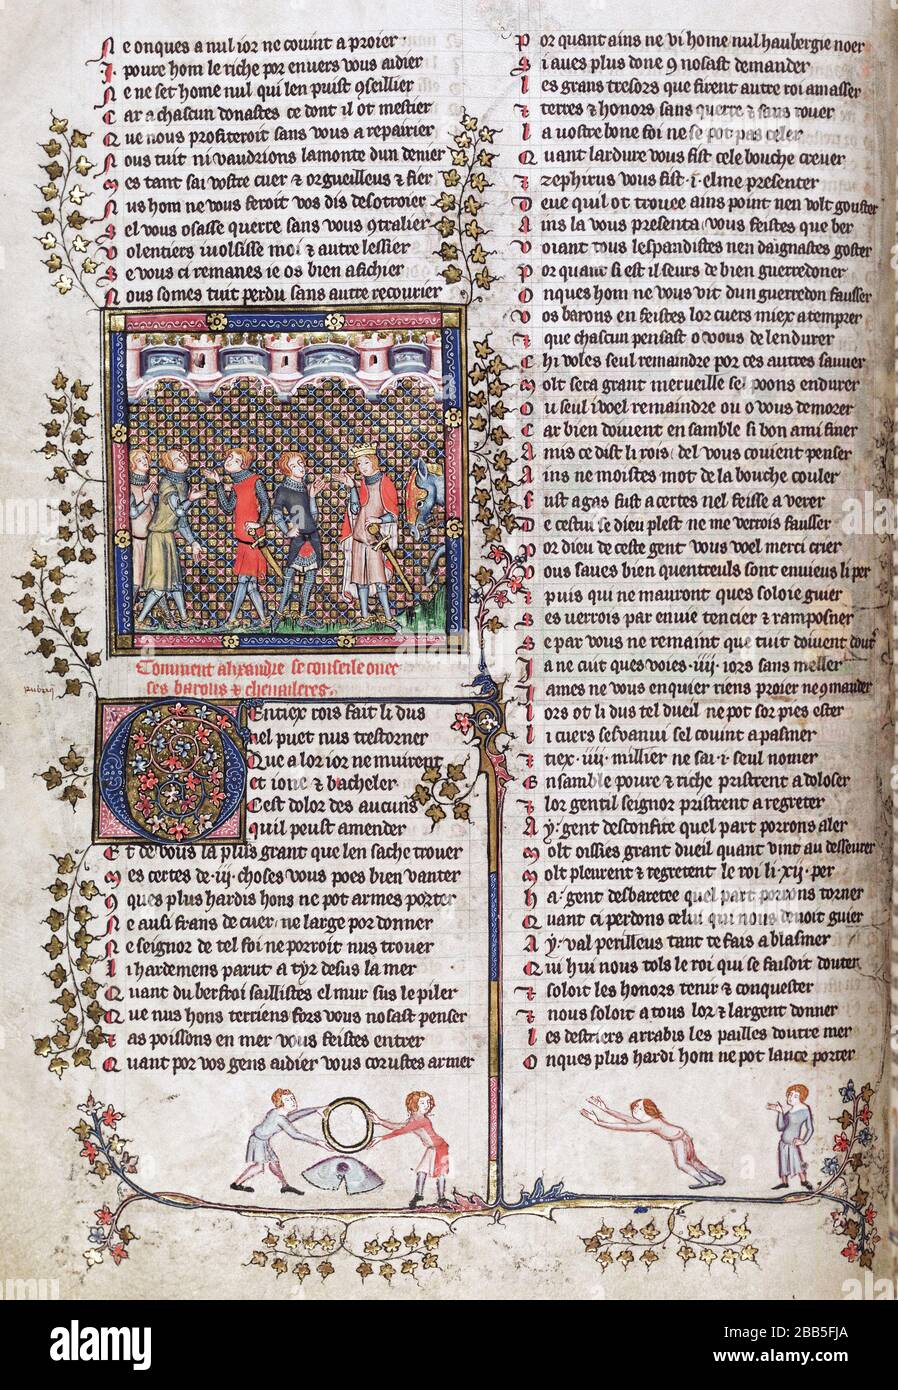 Ne onques a nul ior ne couint a proier
I poure hom le riche por enuers vous aidier
Ne ne set home nul qui len puist 9seillier
Car a chascun donastes ce dont il ot mestier
Que nous profiteroit sans vous a repairier
Nous tuit ni vaudrions lamonte dun denier
Mes tant sai vostre cuer & orgueilleus & fier
Nus hom ne vous feroit vos dis desotroier
Sel vous osasse querre sans vous 9tralier
Volentiers iuolsisse moi & autre lessier
Se vous ci remanes ie os bien afichier
Nous somes tuit perdu sans autre recourier
Comment alixandre se conseille ouec
ses barons & cheualeres
Gentiex rois fait li dus
nel puet nus trestorner
Que a lor ior ne muirent
et ione & bacheler
Cest dolor des aucuns
quil peust amender
Et de vous la plus grant que len sache trouer
Mes certes de .iij. choses vous poes bien vanter
9ques plus hardis hons ne pot armes porter
Ne ausi frans de cuer ne large por donner
Ne seignor de tel foi ne porroit nus trouer
Li hardemens parut a tyr desus la mer
Quant du berfroi saillistes el mur sus le piler
Que nus hons terriens fors vous nosast penser
as poissons en mer vous feistes entrer
Quant por vos gens aidier vous corustes armer
Por quant ains ne vi home nul haubergie noer
Si aues plus done 9 nosast demander
Les grans tresors que firent autre roi amasser
terres & honors sans querre & sans rouer
La vostre bone foi ne se pot pas celer
Quant lardure vous fist cele bouche creuer
zephirus vous fist .i. elme presenter
Deue quil ot trouee ains point nen volt gouster
Ains la vous presenta vous feistes que ber
Voiant tous les pandistes nen daignastes goster
Por quant si est il seurs de bien guerredoner
Onques hom ne vous vit dun guerredon fausser
Vos barons en feistes lor cuers miex atemprer
que chascun pensast o vous de lendurer
Chi voles seul remaindre por ces autres sauuer
Molt sera grant merueille sel poons endurer
Ou seul ivoel remaindre ou o vous demorer
Car bien doiuent ensamble si bon ami finer
Amis ce dist li rois del vous couient penser
Ains ne moistes mot de la bouche couler
fust a gas fust a certes nel feisse auerer
De cestui se dieu plest ne me verrois fausser
Por dieu de ceste gent vous voel merci crier
Vous saues bien quentreuls sont enuieus li per
puis qui ne mauront ques soloie guier
Ses uerrois par enuie tencier & ramposner
Se par vous ne remaint que tuit doiuent
Ja ne cuit ques voies .iiij. iors sans meller
James ne vous enquier riens proier ne 9mander
Lors ot li dus tel dueil ne pot sor pies ester
Li cuers se suanui sel couint a pasmer
tiex .iiij. millier ne sai .i. seul nomer
Ensamble poure & riche pristrent a doloser
lor gentil seignor pristrent a regreter
Ay gent desconfite quel part porrons aler
Molt oissies grant dueil quant vint au desseurer
Molt pleurent & regretent le roi li .xij. per
Ha gent desbaretee quel part porrons torner
Quant ci perdons celui qui nous deuoit guier
Ay val perilleus tant te fais a blasmer
Qui hui nous tols le roi qui se faisoit douter
soloit les honors tenir & conquester
nous soloit a tous lor & largent donner
les destriers arrabis les pailles doutre mer
Onques plus hardi hom ne pot lance porter
alamy
Image ID: 2BB5FJA
www.alamy.com